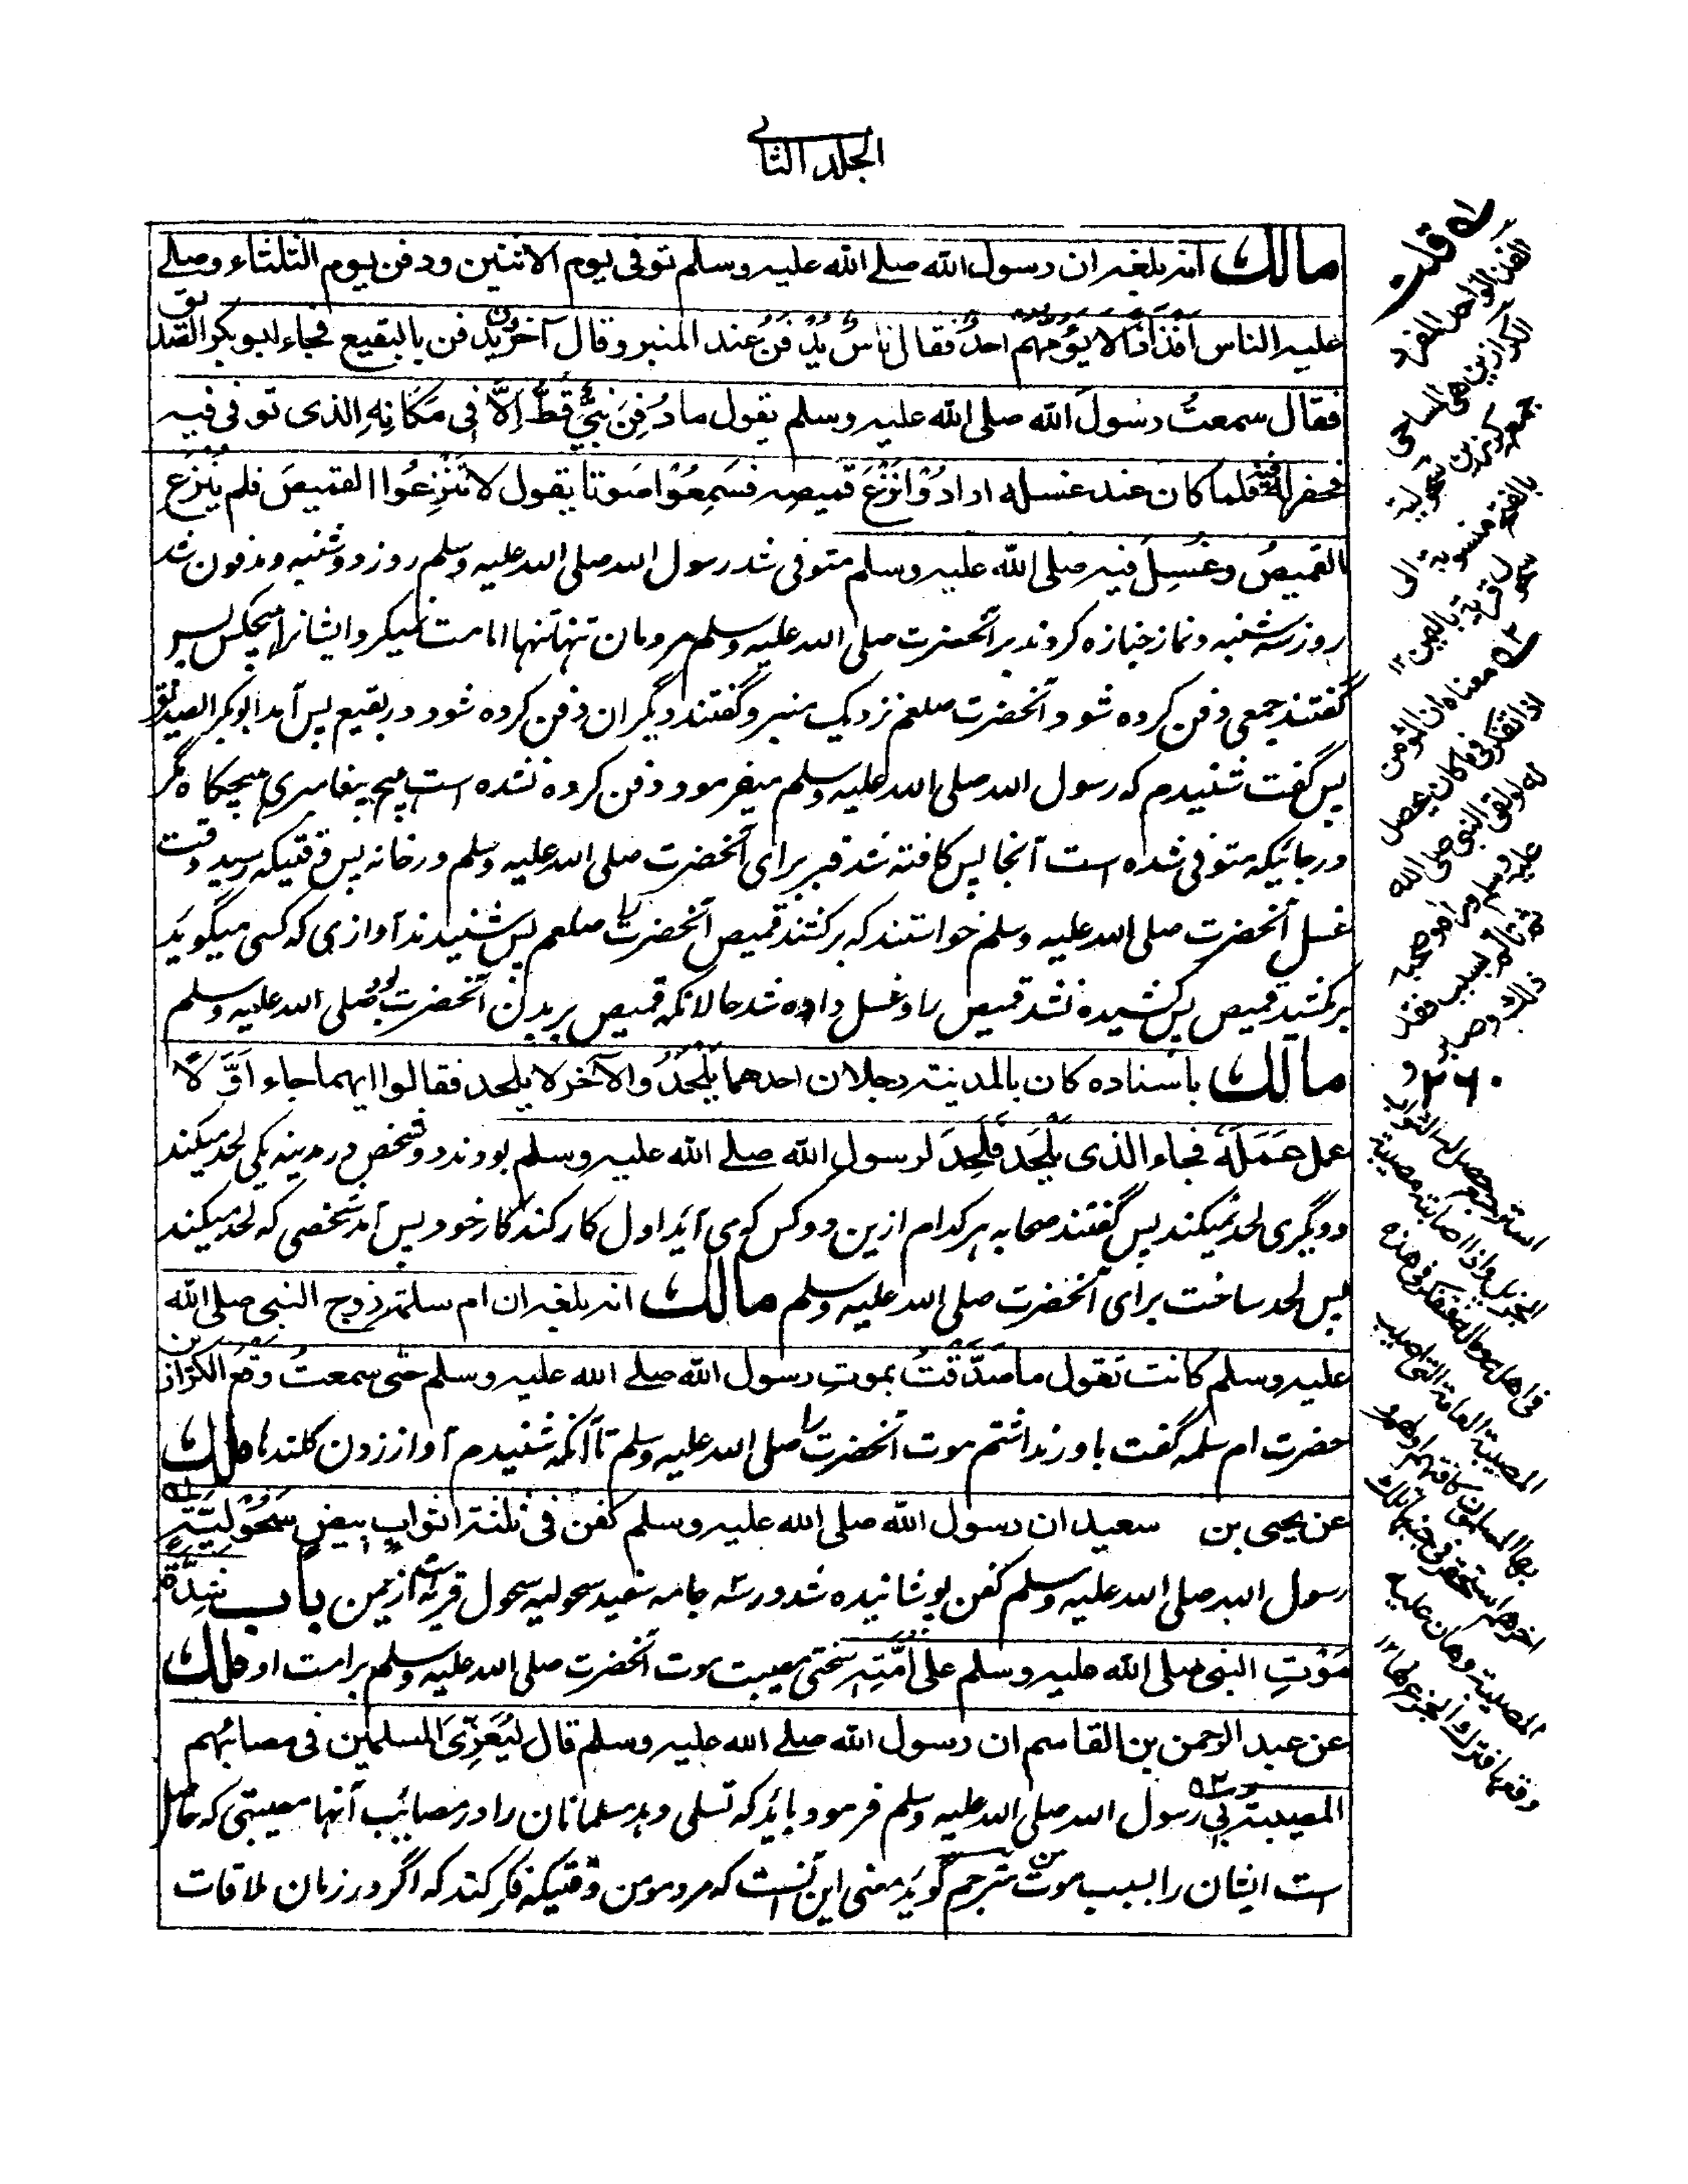 الجلد الثانی
مالك انہ بلغہ ان رسول الله صلے الله علیہ وسلم توفی یوم الاثنین ودفن یوم الثلثاء وصلے
علیہ الناس اَفْذَاذًا لا یَؤُمهم احدٌ فقال ناسٌ یُدْفَنُ عند المنبر وقال آخرون یُدفن بالبقیع فجاء ابوبکر الصدیق
فقال سمعتُ رسولَ الله صلی الله علیہ وسلم یقول ما دُفِنَ نبیٌّ قَطُّ اِلَّا فی مَکَانِهِ الذی توفی فیہ
فحفر لہ فیہ فلما کان عند غسلہ ارادُوْا نَزْعَ قمیصہ فسَمِعُوْا صَوتا یقول لا تَنْزِعُوا القمیصَ فلم یُنْزَعِ
القمیصُ وغُسِلَ فیہ صلی الله علیہ وسلم متوفی شد رسول الله صلی الله علیہ وسلم روز دوشنبہ ومدفون شد
روز سہ شنبہ ونماز جنازہ کردند بر آنحضرت صلی الله علیہ وسلم مردمان تنہا تنہا امامت نمیکرد ایشانرا ہیچکس پس
گفتند جمعی دفن کردہ شود آنحضرت صلعم نزدیک منبر وگفتند دیگران دفن کردہ شود در بقیع پس آمد ابوبکر الصدیق
پس گفت شنیدم کہ رسول الله صلی الله علیہ وسلم میفرمود دفن کردہ نشدہ است ہیچ پیغامبری ہیچگاہ مگر
در جائیکہ متوفی شدہ است آنجا پس کافتہ شد قبر برای آنحضرت صلی الله علیہ وسلم در خانہ پس وقتیکہ رسید وقت
غسل آنحضرت صلی الله علیہ وسلم خواستند کہ برکشند قمیص آنحضرت را صلعم پس شنیدند آوازی کہ کسی میگوید
برمکشید قمیص پس کشیدہ نشد قمیص را وغسل دادہ شد حالانکہ قمیص بر بدن آنحضرت بود صلی الله علیہ وسلم
مالك باسنادہ کان بالمدینة رجلان احدهما یَلْحَدُ والآخر لا یلحد فقالوا ایهما جاء اَوَّلًا
عمل عَمَلَهٗ فجاء الذی یَلْحَد فَلَحَدَ لرسول الله صلے الله علیہ وسلم بودند دو شخص در مدینہ یکی لحد میکند
ودیگری لحد نمیکند پس گفتند صحابہ ہر کدام ازین دو کس کو می آید اول کار کند کار خود پس آمد شخصی کہ لحد میکند
پس لحد ساخت برای آنحضرت صلی الله علیہ وسلم مالك انہ بلغہ ان ام سلمة زوج النبی صلی الله
علیہ وسلم کانت تقول ما صَدَّقْتُ بموتِ رسول الله صلے الله علیہ وسلم حتی سمعتُ وقعَ الکَرَازِین
حضرت ام سلمہ گفت باور نداشتم موت آنحضرت را صلی الله علیہ وسلم تا آنکہ شنیدم آواز زدن کلندہا مالك
عن یحیی بن سعید ان رسول الله صلی الله علیہ وسلم کفن فی ثلثة اثوابٍ بیضٍ سَحُوْلِیَّةٍ
رسول الله صلی الله علیہ وسلم کفن پوشانیدہ شد در سہ جامہ سفید سحولیہ سحول قریہ است از یمن باب شِدَّة
مَوْتِ النبی صلی الله علیہ وسلم علی اُمَّتِہ سختی مصیبت موت آنحضرت صلی الله علیہ وسلم بر امت او مالك
عن عبد الرحمن بن القاسم ان رسول الله صلے الله علیہ وسلم قال لِیُعَزِّیَ المسلمین فی مصائبهم
المصیبة بی رسول الله صلی الله علیہ وسلم فرمود باید کہ تسلی دہد مسلمانان را در مصائب آنہا مصیبتی کہ حاصل
است ایشان را بسبب موت من مترجم گوید معنی این آنست کہ مرد مومن وقتیکہ فکر کند کہ اگر در زمان ملاقات
لہ قلت
الفذ الواحد المفرد
الکرازین هی المساحی
جمع کرزین سحولیة
بالفتح منسوبة الی
سحول قریة بالیمن ۱۲
معناه ان المؤمن
اذا تفکر فی ما کان یحصل
له لو لقی النبی صلی الله
علیہ وسلم
ثم تالم بسبب فقد
ذلك وصبر و
استرجع حصل له الثواب
الجزیل واذا اصابتہ مصیبة
فی اهله وماله فتفکر فی هذه
المصیبة العامة التی اصیب
بها المسلمون